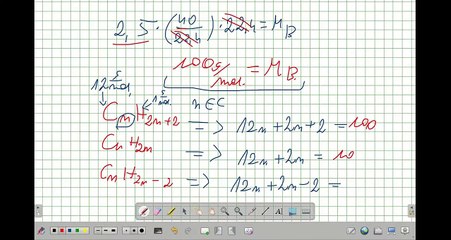 2,5 · (40/22,4) · 22,4 = M_B
100 g/mol = M_B
12 g/mol 1 g/mol
C_nH_2n+2 n∈C => 12n+2n+2 = 100
C_nH_2n => 12n+2n = 10
C_nH_2n-2 => 12n+2n-2 =